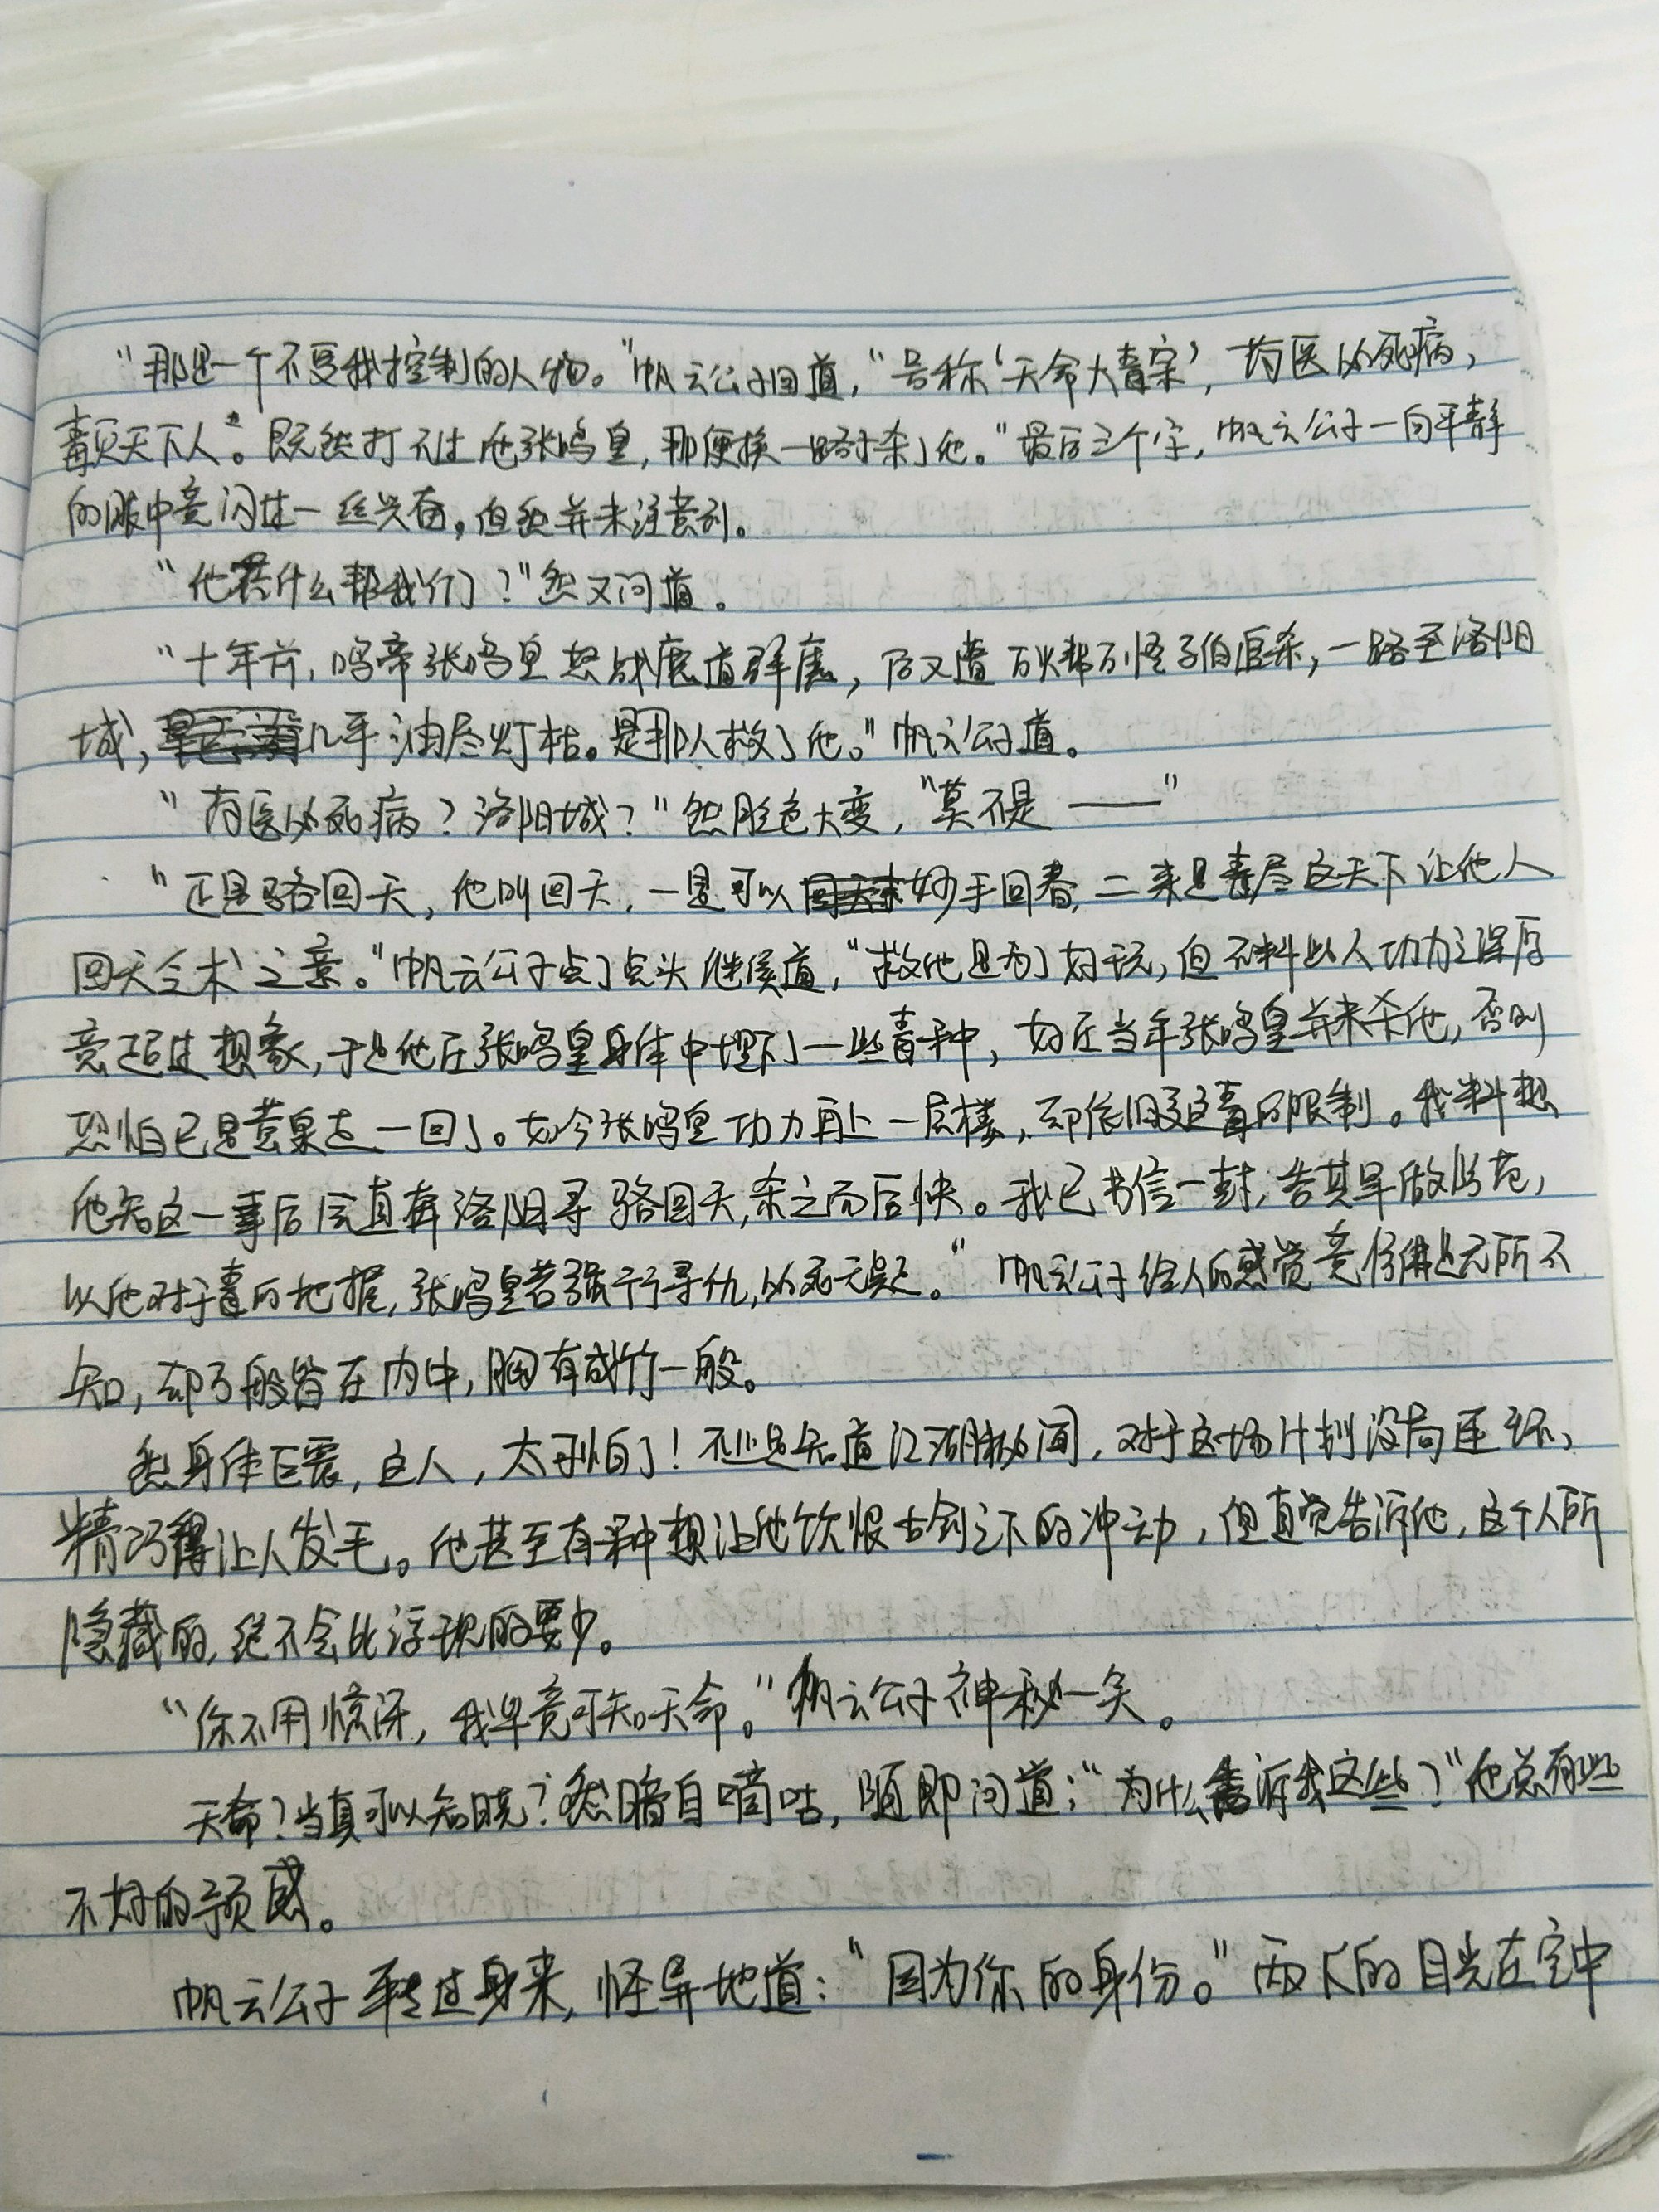 “那是一个不受我控制的人物。”帆云公子回道，“号称‘天命大毒宗’，药医必死病，
毒灭天下人”。既然打不过他张鸣皇，那便换一路杀了他。”最后三个字，帆云公子一向平静
的眼中竟闪过一丝兴奋，但愁并未注意到。
“他凭什么帮我们？”愁又问道。
“十年前，鸣帝张鸣皇怒战魔道群魔，后又遭万火帮万怪子伯追杀，一路至洛阳
城，几乎油尽灯枯。是那人救了他。”帆云公子道。
“药医必死病？洛阳城？”愁脸色大变，“莫不是——”
“正是骆回天，他叫回天，一是可以妙手回春，二来是毒尽这天下让他人
回天乏术之意。”帆云公子点了点头继续道，“救他是为了好玩，但不料此人功力之深厚
竟超过想象，于是他在张鸣皇身体中埋下了一些毒种，好在当年张鸣皇并未杀他，否则
恐怕已是黄泉走一回了。如今张鸣皇功力再上一层楼，却依旧受这毒的限制。我料想
他知这一事后会直奔洛阳寻骆回天，杀之而后快。我已书信一封，告其早做防范，
以他对于毒的把握，张鸣皇若强行寻仇，必死无疑。”帆云公子给人的感觉竟仿佛是无所不
知，却万般皆在内中，胸有成竹一般。
愁身体巨震，这人，太可怕了！不止是知道江湖秘闻，对于这场计划没局连环，
精巧得让人发毛。他甚至有种想让他饮恨古剑之下的冲动，但直觉告诉他，这个人所
隐藏的，绝不会比浮现的要少。
“你不用惊讶，我毕竟可知天命。”帆云公子神秘一笑。
天命？当真可以知晓？愁暗自嘀咕，随即问道：“为什么告诉我这些？”他总有些
不好的预感。
帆云公子转过身来，怪异地道：“因为你的身份。”两人的目光在空中